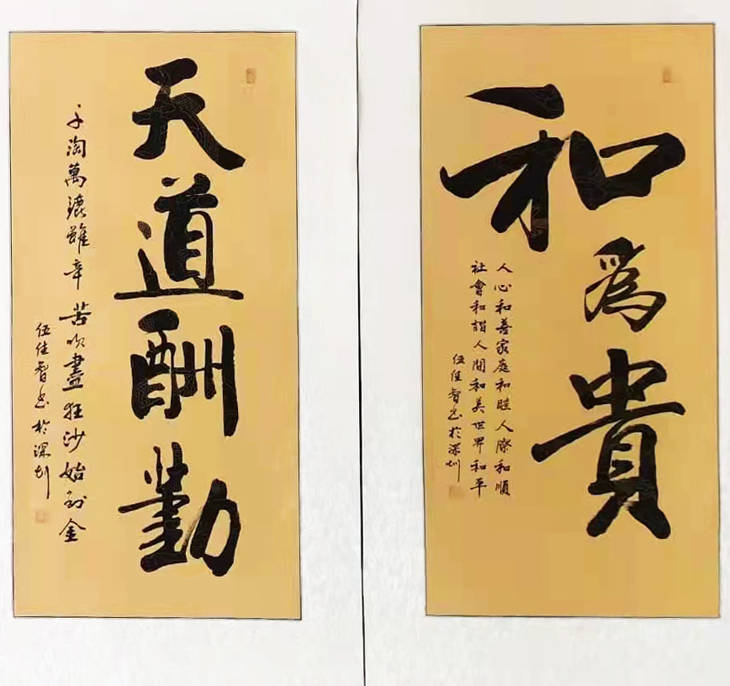 天道酬勤
千淘萬漉雖辛苦吹盡狂沙始到金
伍佳智书於深圳
和為貴
人心和善家庭和睦人際和順
社會和諧人間和美世界和平
伍佳智书於深圳